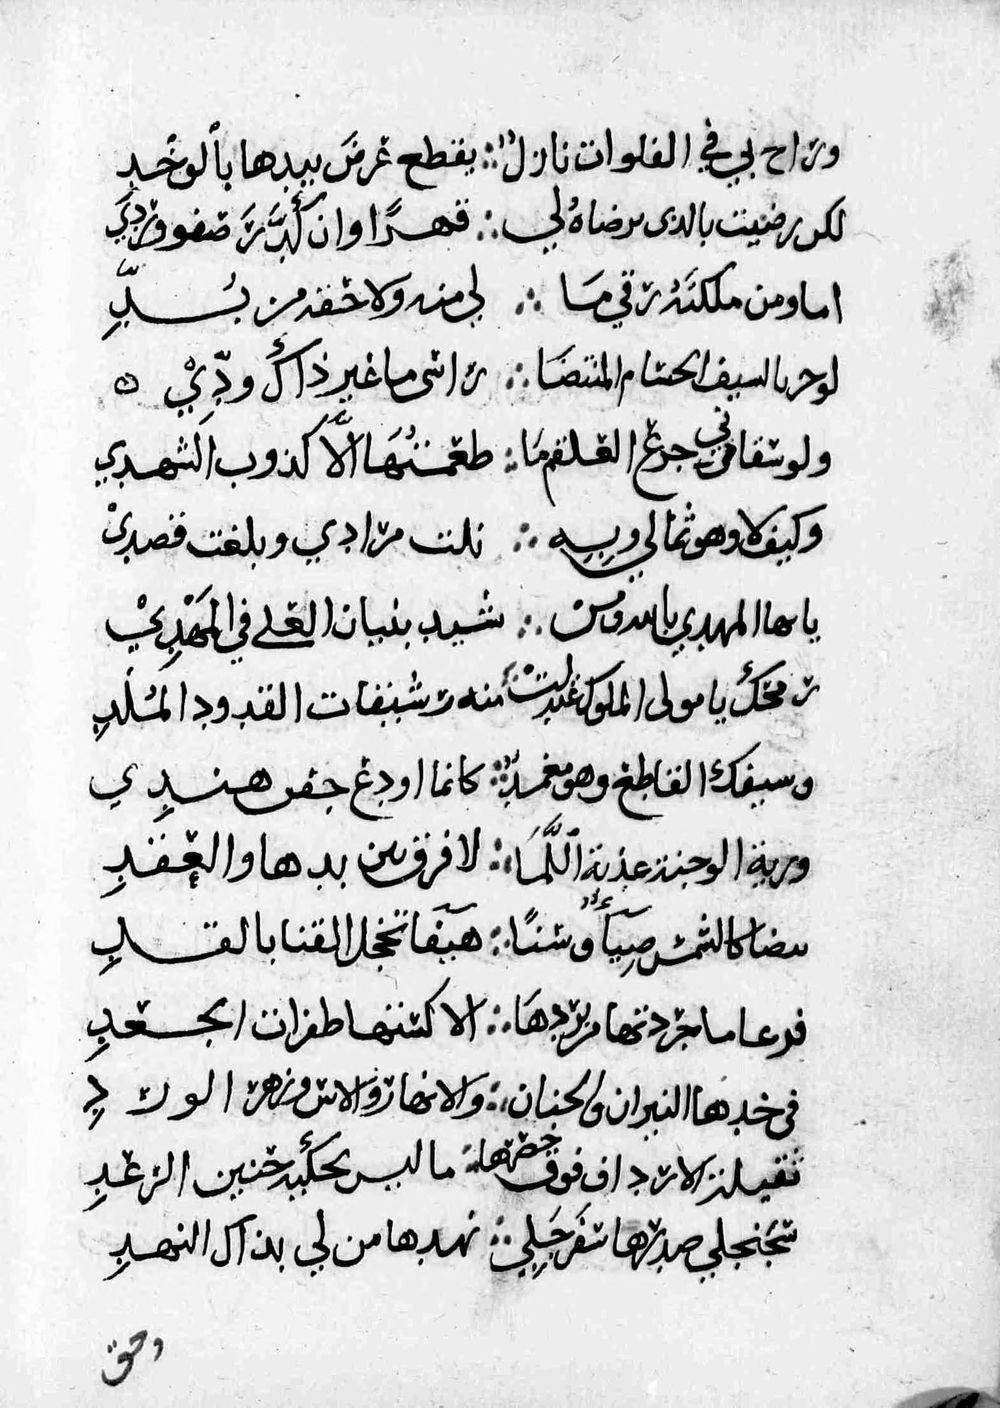 وراح بي في الفلوات نازل ∴ يقطع عرض بيدها بالوخد
لكن رضيت بالذي يرضاه لي ∴ قهرًا وان كدّر صفو وردي
اما ومن ملكته رقي مَا ∴ لي منه ولا خنقه من بُدِّ
لو حز بالسيف الحسام المنتضا ∴ راسي ما غير ذاك ودّي
ولو سقاني جرع العلقم مَا ∴ طعمتُهَا الّا كذوب الشهدي
وكيف لا وهو ثمالي وبه ∴ نلت مرادي وبلغت قصدي
يا ايها المهدي يا ∴ شيد بنيان العلى في المَهْدِي
رمحك يا مولى الملوك غدلت ∴ منه رشيقات القدود الملد
وسيفك القاطع وهو مغمد ∴ كانما اودع جفن هندي
وربة الوجنة عذبة اللَّمَا ∴ لا فرق بين بدها والعقد
بيضا كالشمس ضياً وسنًا ∴ هيفا تخجل القنا بالقد
فرعا ما جردتها من بردهَا ∴ الا كستها طفرات الجعد
في خدها النيران والجنان ∴ والانهار والاس وزهر الورد
ثقيلة الارداف فوق خصرها ∴ ما ليس يحكيه حنين الرعد
سجنجلي صدرها سفرجلي ∴ نهدها من لي بذاك النهد
وحق